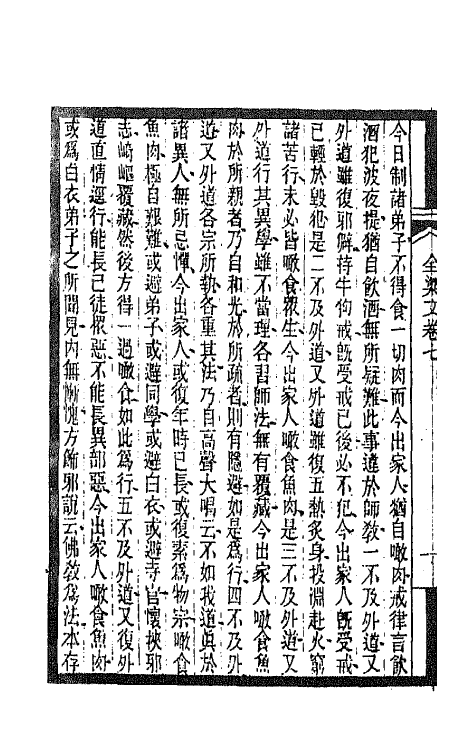 全梁文卷七
今日制諸弟子不得食一切肉而今出家人猶自噉肉戒律言飲
酒犯波夜提猶自飲酒無所疑難此事違於師教一不及外道又
外道雖復邪僻持牛狗戒旣受戒已後必不犯今出家人旣受戒
已輕於毀犯是二不及外道又外道雖復五熱炙身投淵赴火窮
諸苦行未必皆噉食衆生今出家人噉食魚肉是三不及外道又
外道行其異學雖不當理各習師法無有覆藏今出家人噉食魚
肉於所親者乃自和光於所疏者則有隱避如是爲行四不及外
道又外道各宗所執各重其法乃自高聲大唱云不如我道眞於
諸異人無所忌憚今出家人或復年時已長或復素爲物宗噉食
魚肉極自艱難或避弟子或避同學或避白衣或避寺官懷挾邪
志崎嶇覆藏然後方得一過噉食如此爲行五不及外道又復外
道直情逕行能長己徒衆惡不能長異部惡今出家人噉食魚肉
或爲白衣弟子之所聞見內無慚愧方飾邪說云佛教爲法本存